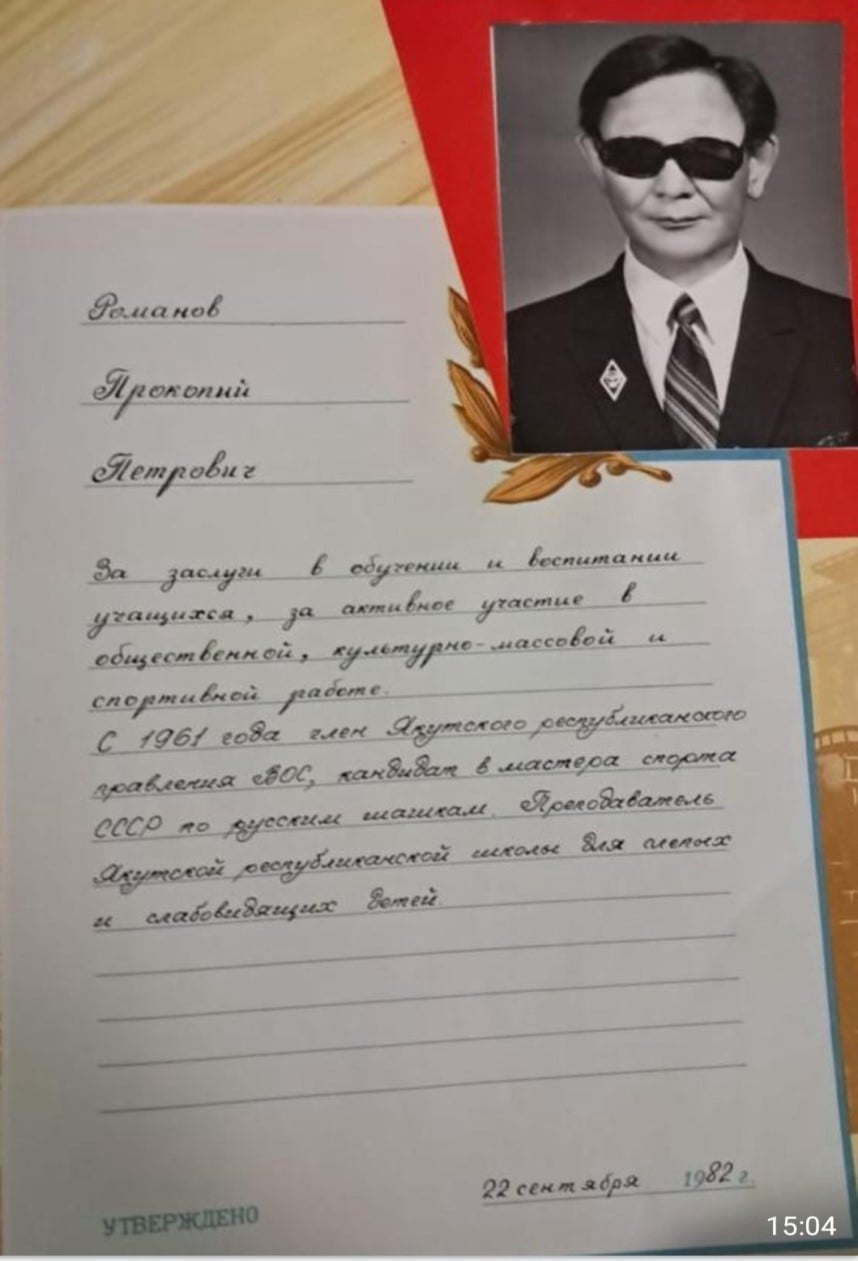 Романов
Прокопий
Петрович
За заслуги в обучении и воспитании
учащихся, за активное участие в
общественной, культурно-массовой и
спортивной работе.
С 1961 года член Якутского республиканского
правления ВОС, кандидат в мастера спорта
СССР по русским шашкам. Преподаватель
Якутской республиканской школы для слепых
и слабовидящих детей.
22 сентября 1982 г.
УТВЕРЖДЕНО
15:04